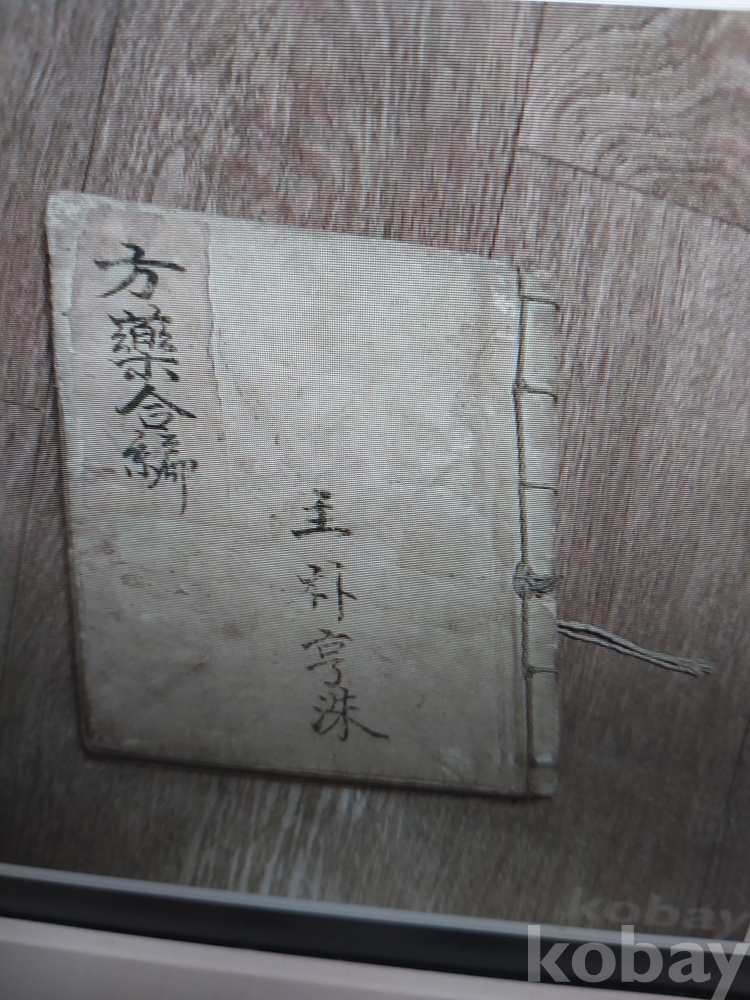 方藥合編
主 亨洙
kobay
kobay